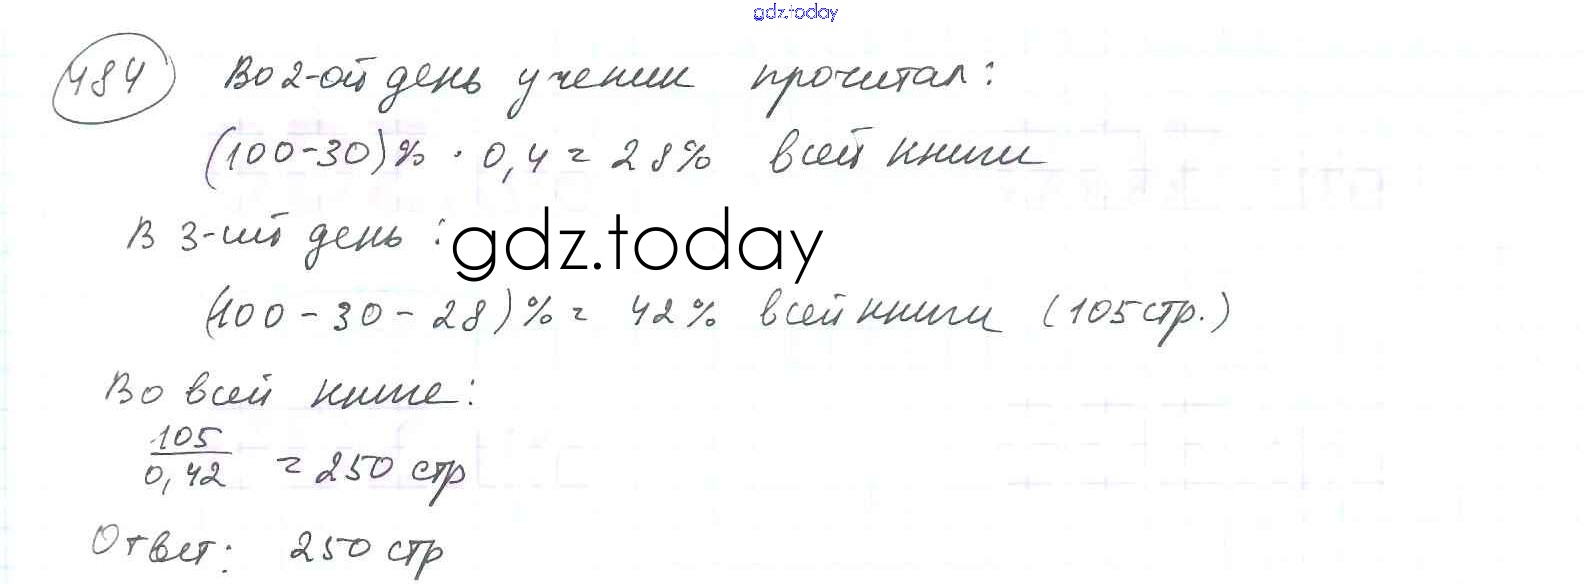 gdz.today
484 Во 2-ой день ученик прочитал:
(100-30)% · 0,4 = 28% всей книги
В 3-ий день:
gdz.today
(100 - 30 - 28)% = 42% всей книги (105 стр.)
Во всей книге:
105
0,42 = 250 стр
Ответ: 250 стр